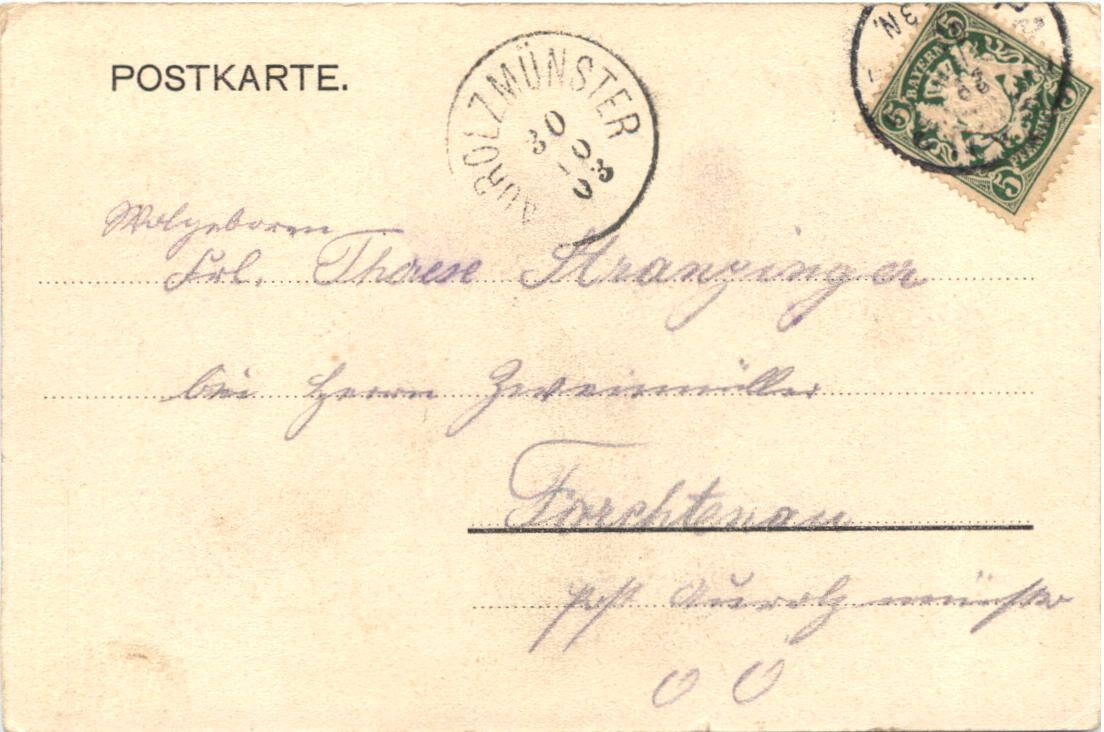 POSTKARTE.
AUROLZMÜNSTER
30
03
BAYERN
5 5
PFENNIG
5
Wolgeboren
Frl. Therese Stranzinger
bei Herrn Zweimüller
Forchtenau
post Aurolzmünster
OÖ